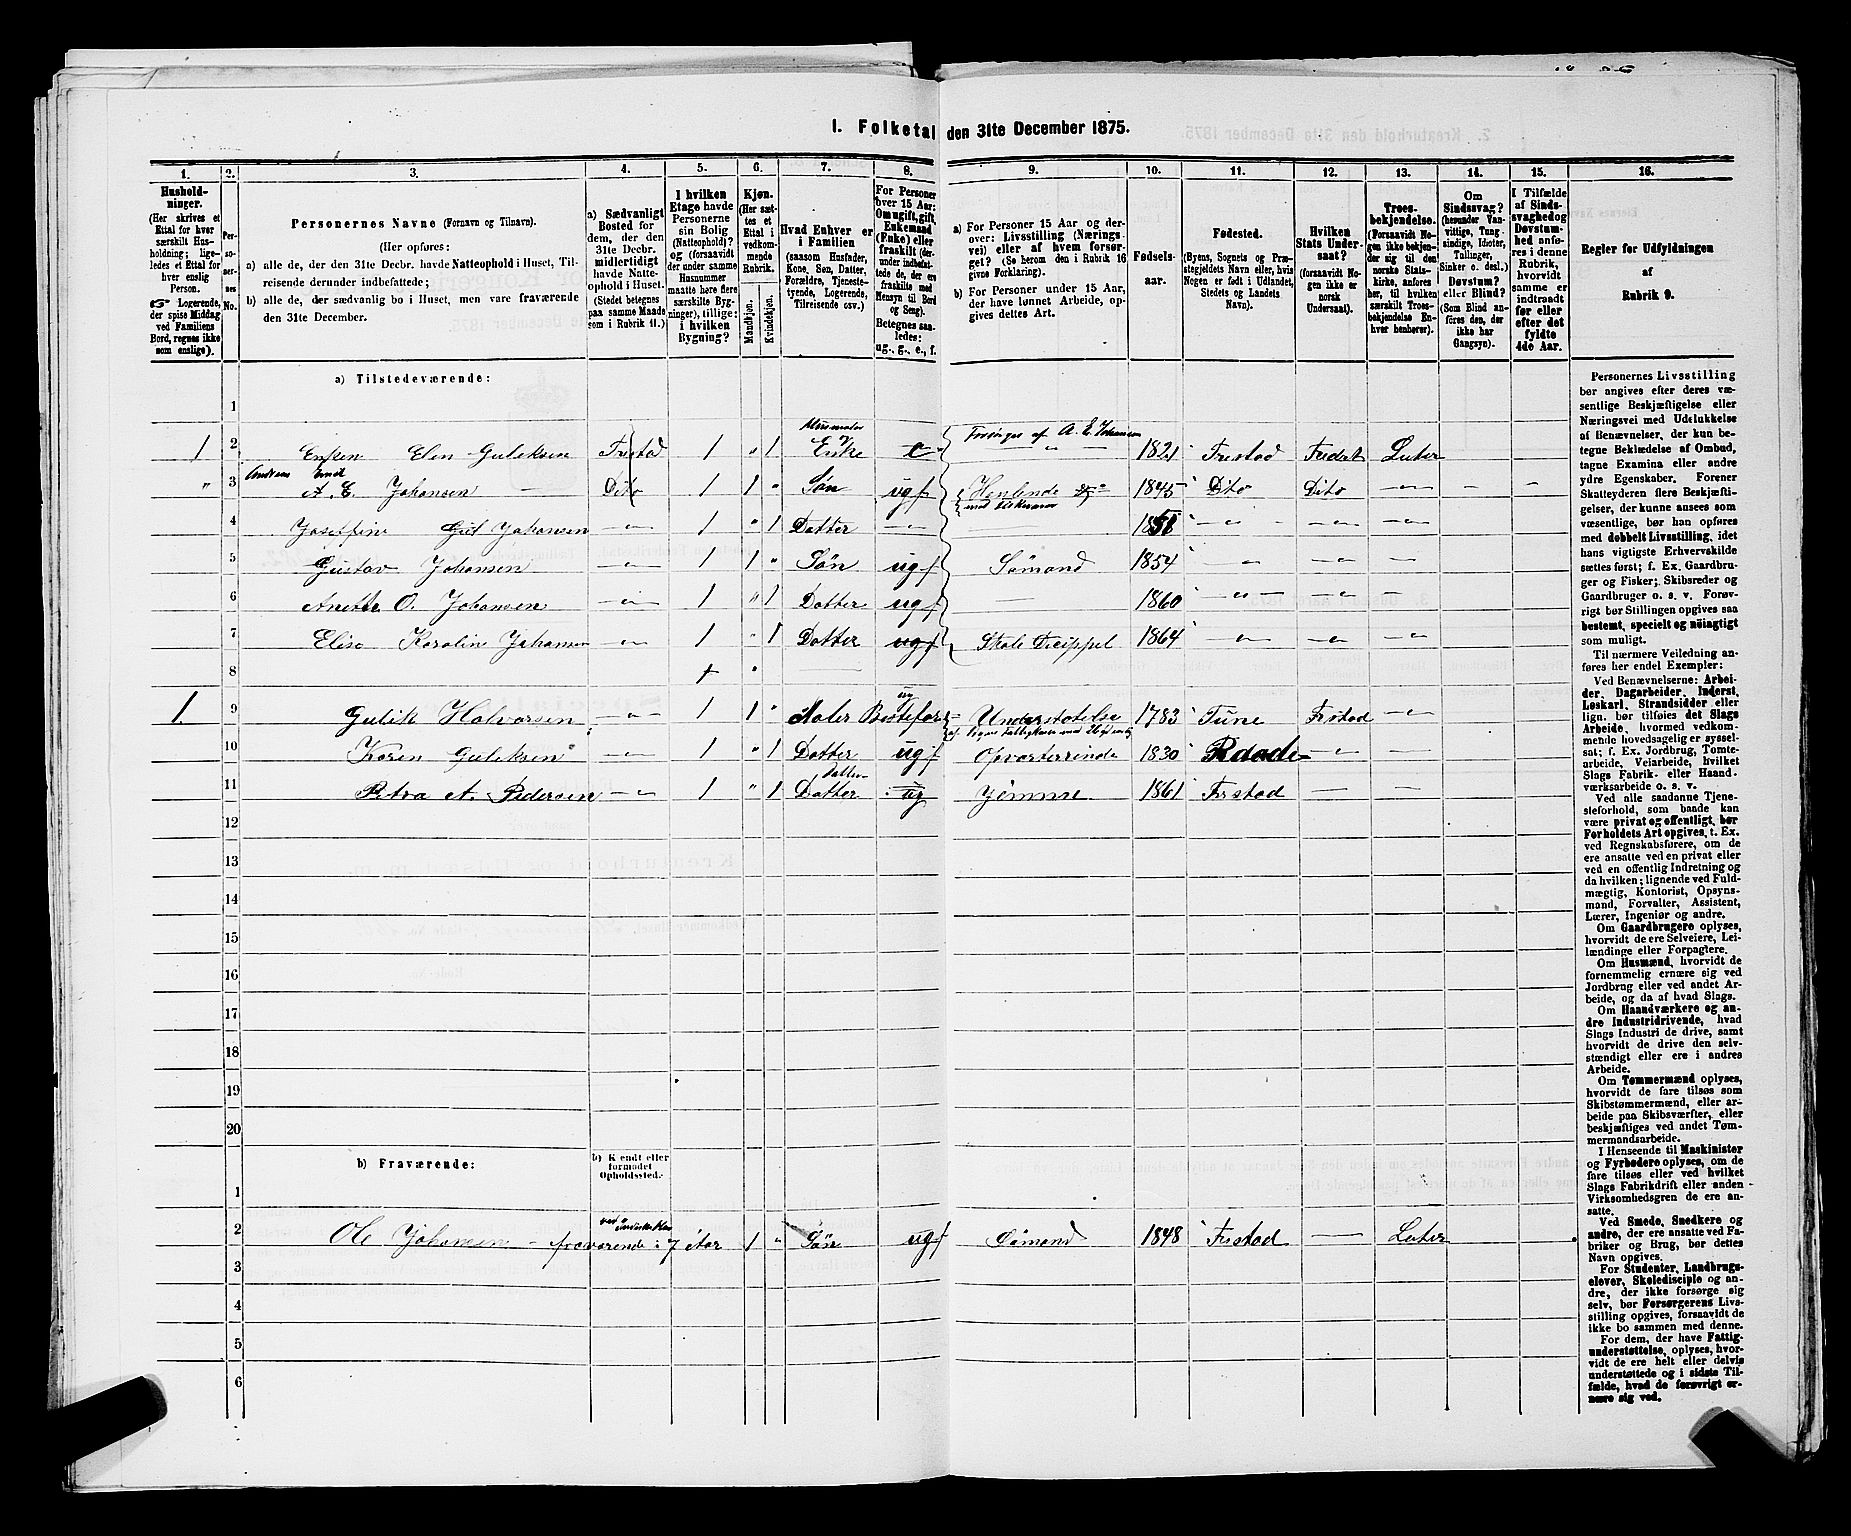 1. Folketal den 31te December 1875.
1. 2. 3. 4. 5. 6. 7. 8. 9. 10. 11. 12. 13. 14. 15. 16.
Hushold-
ninger.
(Her skrives et
Ettal for hver
særskilt Hus-
holdning; lige-
ledes et Ettal for
hver enslig
Person.
☞ Logerende,
der spise Middag
ved Familiens
Bord, regnes ikke
som enslige).
Per-
so-
ner-
nes
No.
Personernes Navne (Fornavn og Tilnavn).
(Her opføres:
a) alle de, der den 31te Decbr. havde Natteophold i Huset, Til-
reisende derunder indbefattede;
b) alle de, der sædvanlig bo i Huset, men vare fraværende
den 31te December.
a) Sædvanligt
Bosted for
dem, der den
31te Decbr.
midlertidigt
havde Natte-
ophold i Huset.
(Stedet betegnes
paa samme Maade
som i Rubrik 11.)
I hvilken
Etage havde
Personerne
sin Bolig
(Natteophold)?
og (forsaavidt
der under samme
Husnummer
maatte høre flere
særskilte Byg-
ninger), tillige:
i hvilken
Bygning?
Kjøn.
(Her sæt-
tes et
Ettal i
vedkom-
mende
Rubrik.
Mandkjøn.
Kvindekjøn.
Hvad Enhver er
i Familien
(saasom Husfader,
Kone, Søn, Datter,
Forældre, Tjeneste-
tyende, Logerende,
Tilreisende osv.)
For Personer
over 15 Aar:
Om ugift, gift,
Enkemand
(Enke) eller
fraskilt (der-
under indbefat-
tede de, der ere
fraskilte med
Hensyn til Bord
og Seng).
Betegnes saa-
ledes:
ug., g., e., f.
a) For Personer 15 Aar og der-
over: Livsstilling (Nærings-
vei) eller af hvem forsør-
get? (Se herom den i Rubrik 16
givne Forklaring).
b) For Personer under 15 Aar,
der have lønnet Arbeide, op-
gives dettes Art.
Fødsels-
aar.
Fødested.
(Byens, Sognets og Præ-
stegjeldets Navn eller, hvis
Nogen er født i Udlandet,
Stedets og Landets
Navn).
Hvilken
Stats Under-
saat?
(forsaavidt No-
gen ikke er
norsk
Undersaat).
Troes-
bekjendelse.
(Forsaavidt No-
gen ikke bekjen-
der sig til den
norske Stats-
kirke, anføres
her, til hvilken
særskilt Troes-
bekjendelse En-
hver henhører).
Om
Sindssvag?
(herunder Van-
vittige, Tung-
sindige, Idioter,
Tallinger,
Sinker o. desl.)
Døvstum?
eller Blind?
(Som Blind an-
føres den, der
ikke har
Gangsyn).
I Tilfælde
af Sinds-
svaghed og
Døvstum-
hed anfø-
res i denne
Rubrik,
hvorvidt
samme er
indtraadt
før eller
efter det
fyldte
4de Aar.
Regler for Udfyldningen
af
Rubrik 9.
a) Tilstedeværende:
1
Husmoder Forsørges af A. E. Johansen
1 2 Enken Elen Guleksen Frstad 1 " 1 Enke e — " — 1821 Frestad Fredst Luter
Andreas Emil
" 3 A. E. Johansen — Dito 1 1 " Søn ug Henlende 1845 Dito Dito — — —
4 Josefine Gut Johansen — " — 1 " 1 Datter — " — 1851 — " — — " — — " —
5 Gustav Johansen — " — 1 1 " Søn ug Sømand 1854 — " — — " — — " —
6 Anette O. Johansen — " — 1 " 1 Datter ug — 1860 — " — — " — — " —
7 Elisa Karolin Johansen — " — 1 " 1 Datter ug Skole Dicippel 1864 — " — — " — — " —
8
ug
1 9 Gulik Halvorsen — " — 1 1 " Bestefar Understøtelse 1783 Tune Frstad — " —
10 Karen Guleksen — " — 1 " 1 Datter ug Opvarterinde 1830 Raade — " — — " —
Datter
11 Petra A. Pedersen — " — 1 " 1 Datter ug Jømme 1861 Frstad — " — — " —
12
13
14
15
16
17
18
19
20
b) Fraværende:
b) Kendt eller
formodet
Opholdssted.
1
2 Ole Johansen – fraværende i 7 Aar 1 " Søn ug Sømand 1848 Frstad Luter
3
4
5
6
Personernes Livsstilling
bør angives efter deres væ-
sentlige Beskjæftigelse eller
Næringsvei med Udelukkelse
af Benævnelser, der kun be-
tegne Beklædelse af Ombud,
tagne Examina eller andre
ydre Egenskaber. Forener
Skatteyderen flere Beskjæfti-
gelser, der kunne ansees som
væsentlige, bør han opføres
med dobbelt Livsstilling, idet
hans vigtigste Erhvervskilde
sættes først; f. Ex. Gaardbru-
ger og Fisker; Skibsreder og
Gaardbruger o. s. v. Forøv-
rigt bør Stillingen opgives saa
bestemt, specielt og nøiagtigt
som muligt.
Til nærmere Veiledning an-
føres her endel Exempler:
Ved Benævnelserne: Arbei-
der, Dagarbeider, Inderst,
Løskarl, Strandsidder eller
lign. bør tilføies det Slags
Arbeide, hvormed vedkom-
mende hovedsagelig er syssel-
sat; f. Ex. Jordbrug, Tomte-
arbeide, Veiarbeide, hvilket
Slags Fabrik- eller Haand-
værksarbeide o. s. v.
Ved alle saadanne Tjene-
steforhold, som baade kan
være privat og offentligt, bør
Forholdets Art opgives, t. Ex.
ved Regnskabsførere, om de
ere ansatte ved en privat eller
ved en offentlig Indretning og
da hvilken; lignende ved Fuld-
mægtig, Kontorist, Opsyns-
mand, Forvalter, Assistent,
Lærer, Ingeniør og andre.
Om Gaardbrugere oplyses,
hvorvidt de ere Selveiere, Lei-
lændinge eller Forpagtere.
Om Husmænd, hvorvidt de
fornemmelig ernære sig ved
Jordbrug eller ved andet Ar-
beide, og da af hvad Slags.
Om Haandværkere og an-
dre Industridrivende, hvad
Slags Industri de drive, samt
hvorvidt de drive den selv-
stændigt eller ere i andres
Arbeide.
Om Tømmermænd oplyses,
hvorvidt de fare tilsøs som
Skibstømmermænd, eller ar-
beide paa Skibsværfter, eller
beskjæftiges ved andet Tøm-
mermandsarbeide.
I Henseende til Maskinister
og Fyrbødere oplyses, om de
fare tilsøs eller ved hvilket
Slags Fabrikdrift eller anden
Virksomhedsgren de ere an-
satte.
Ved Smede, Snedkere og
andre, der ere ansatte ved Fa-
briker og Brug, bør dettes
Navn opgives.
For Studenter, Landbrugs-
elever, Skoledisciple og an-
dre, der ikke forsørge sig
selv, bør Forsørgerens Livs-
stilling opgives, forsaavidt de
ikke bo sammen med denne.
For dem, der have Fattig-
understøttelse, oplyses, hvor-
vidt de ere helt eller delvis
understøttede og i sidste Til-
fælde, hvad de forøvrigt er-
nære sig ved.